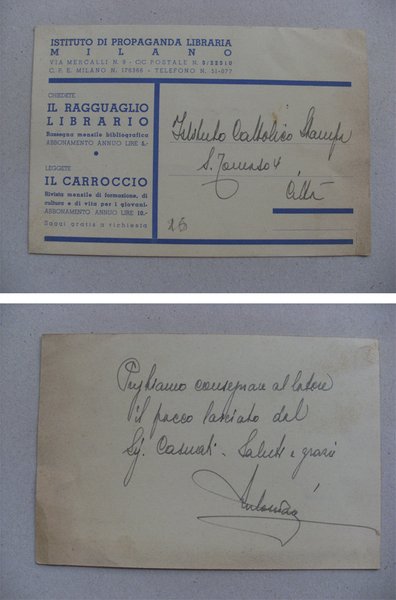 ISTITUTO DI PROPAGANDA LIBRARIA
MILANO
VIA MERCALLI N. 9 - C/C POSTALE N. 3/22510
C. P. E. MILANO N. 176366 - TELEFONO N. 51-077
CHIEDETE
IL RAGGUAGLIO
LIBRARIO
Rassegna mensile bibliografica
ABBONAMENTO ANNUO LIRE 5.-
LEGGETE
IL CARROCCIO
Rivista mensile di formazione, di
cultura e di vita per i giovani.
ABBONAMENTO ANNUO LIRE 10.-
Saggi gratis a richiesta
Istituto Cattolico Stampa
S. Tomaso 4
Città
Preghiamo consegnare al latore
il pacco lasciato dal
Sig. Casnati. Saluti e grazie